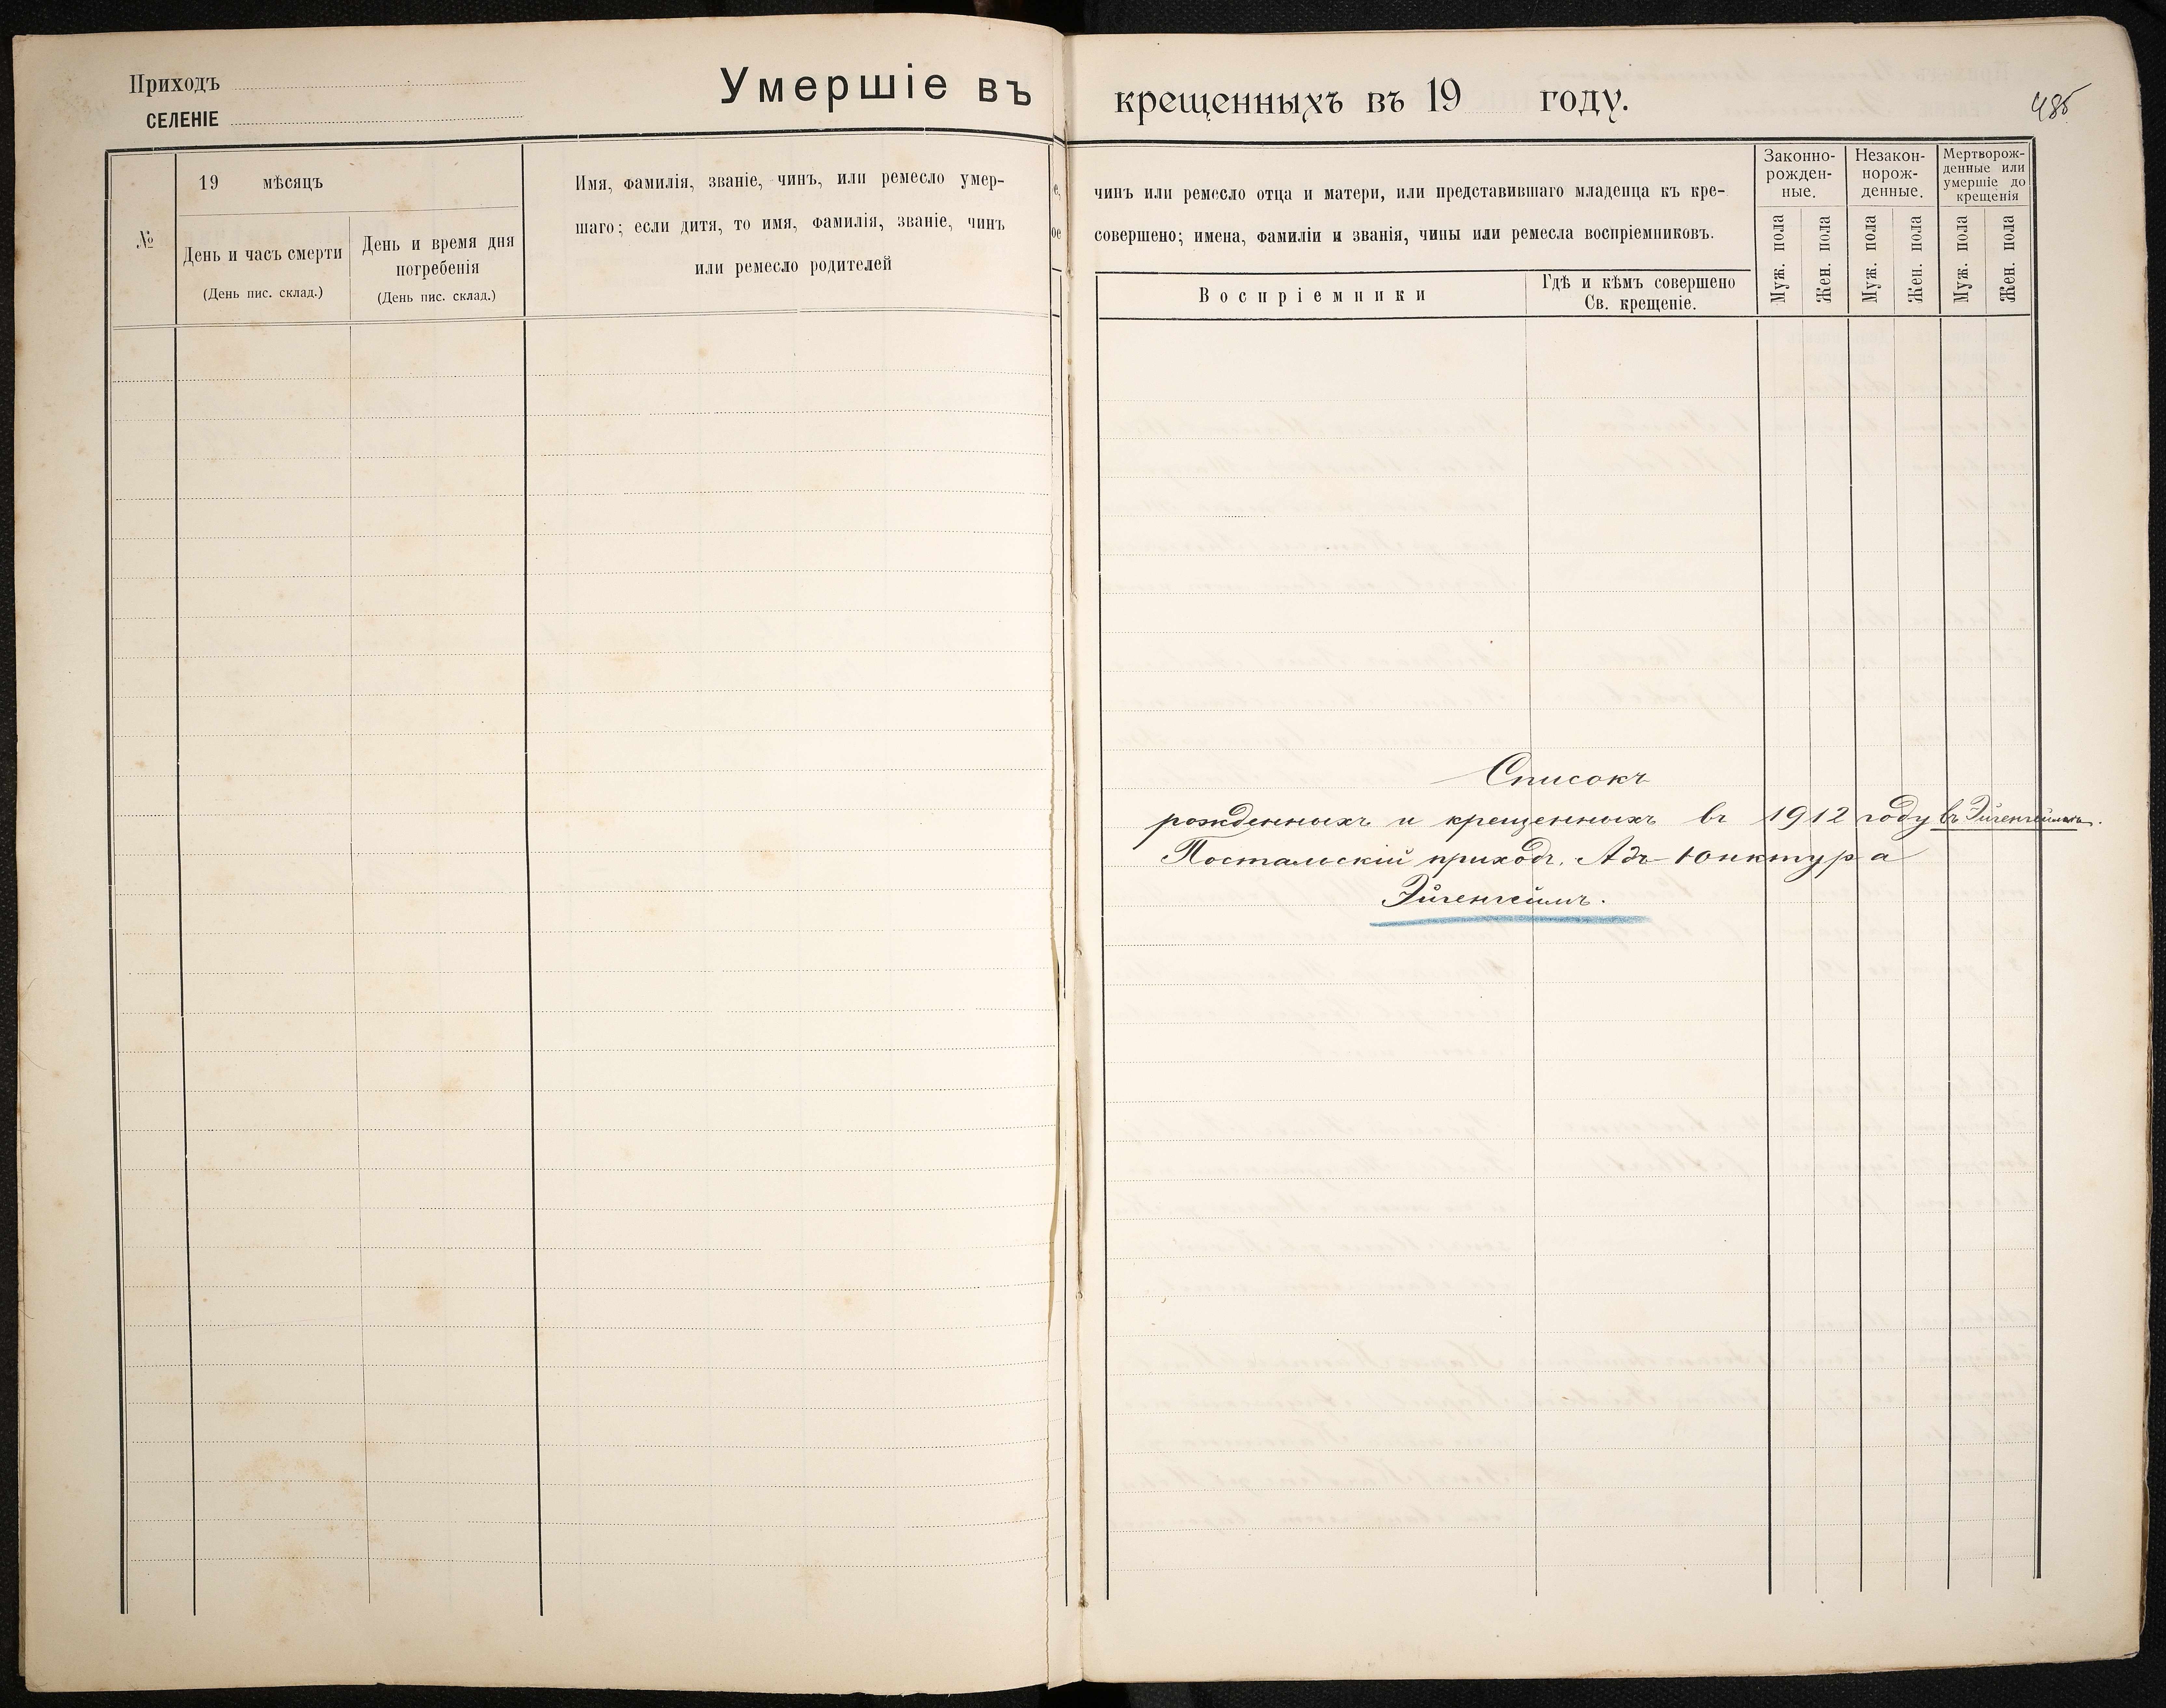 Приходъ
СЕЛЕНІЕ
Умершіе въ
№
19 мѣсяцъ
День и часъ смерти
(День пис. склад.)
День и время дня
погребенія
(День пис. склад.)
Имя, фамилія, званіе, чинъ, или ремесло умер-
шаго; если дитя, то имя, фамилія, званіе, чинъ
или ремесло родителей
крещенныхъ въ 19 году.
485
чинъ или ремесло отца и матери, или представившаго младенца къ кре-
совершено; имена, фамиліи и званія, чины или ремесла воспріемниковъ.
Воспріемники
Гдѣ и кѣмъ совершено
Св. крещеніе.
Законно-
рожден-
ные.
Незакон-
норож-
денные.
Мертворож-
денные или
умершіе до
крещенія
Муж. пола
Жен. пола
Муж. пола
Жен. пола
Муж. пола
Жен. пола
Списокъ
рожденныхъ и крещенныхъ въ 1912 году въ Эйгенгеймѣ.
Постальскій приходъ. Адъ-Юнктура
Эйгенгеймъ.